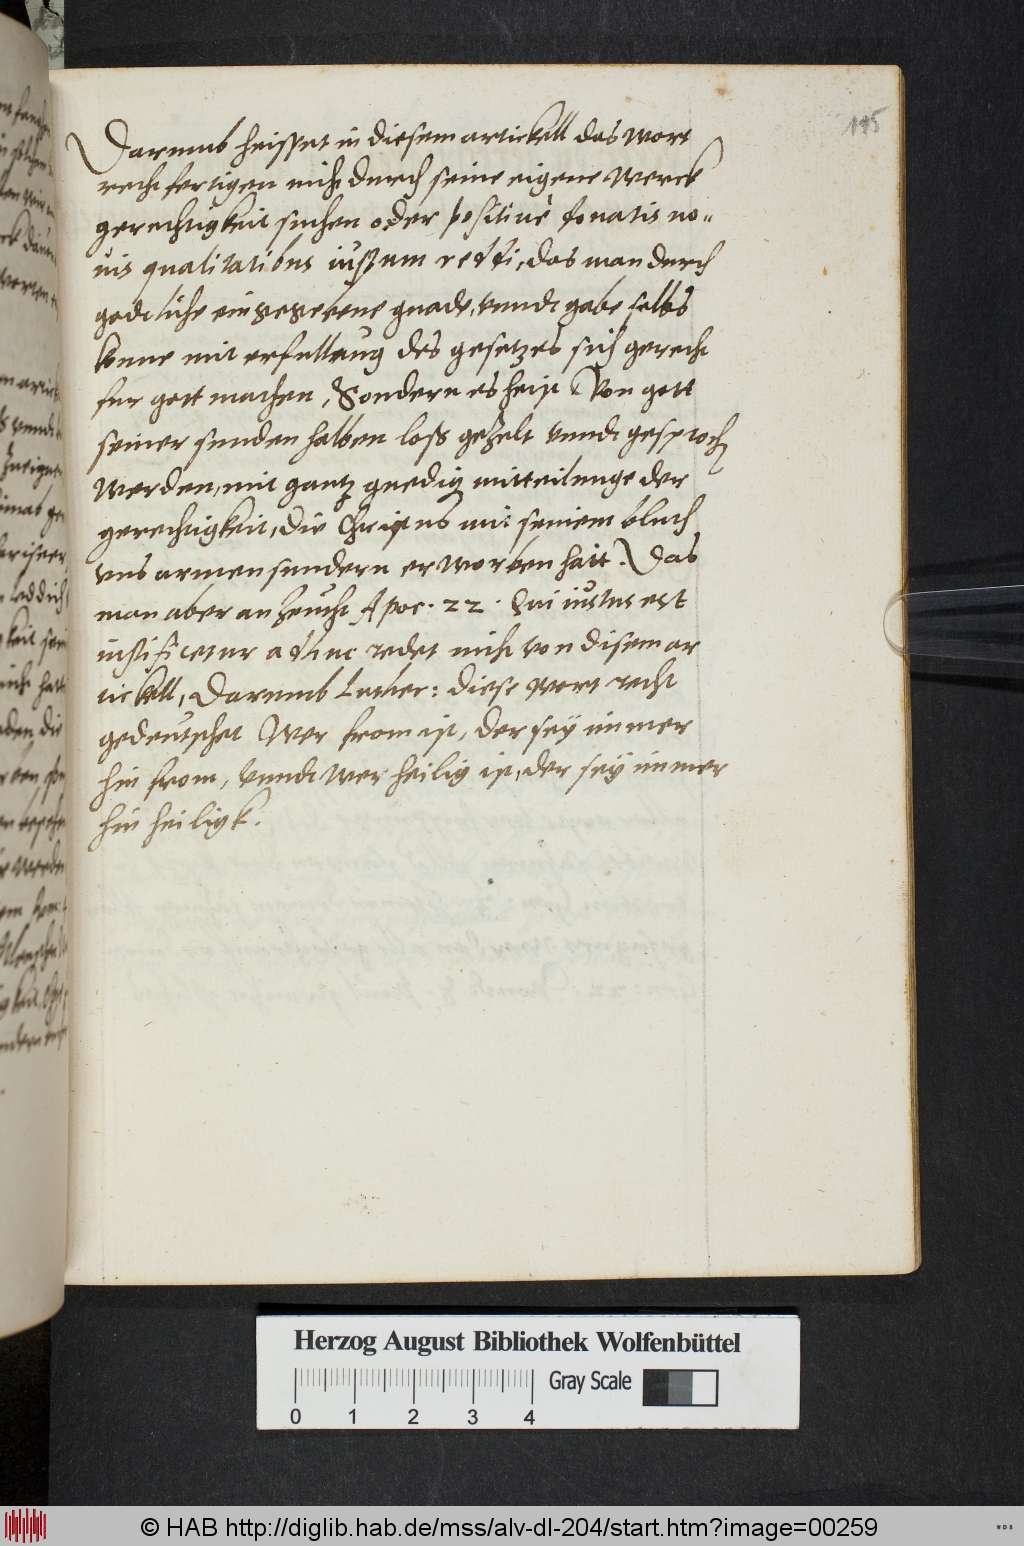 115
Darumb heisset in diesem artickell das wort
rechtfertigen nicht durch seine eigene werck
gerechtigkeit suchen oder positiuè donatis no„
uis qualitatibus iustum reddi, das man durch
godtliche eingegebene gnade, vnndt gabe selbs
konne mit erfullung des gesetzes sich gerecht
fur gott machen, Sondern es heist Von gott
seiner sunden halben loss gezelt vnndt gesproch
werden, mit gantz gnedig mitteilunge der
gerechtigkeit, die Christus mit seinem bluth
vns armen sundern erworben hatt. Das
man aber anzeucht Apoc. 22. Qui iustus est
iustificetur adhuc redet nicht von disem ar
tickell, Darumb Luther: diese wort recht
gedeutschet Wer from ist, der sey immer
hin from, vnndt wer heilig ist, der sey immer
hin heiligk.
Herzog August Bibliothek Wolfenbüttel
Gray Scale
0 1 2 3 4
© HAB http://diglib.hab.de/mss/alv-dl-204/start.htm?image=00259